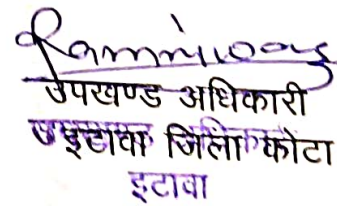 Ramniwas
उपखण्ड अधिकारी
इटावा जिला कोटा
इटावा